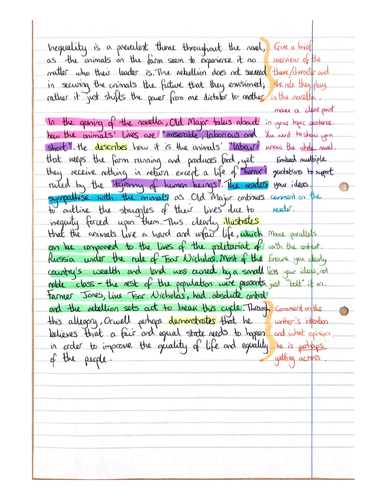 Inequality is a prevalent theme throughout the novel,
as the animals on the farm seem to experience it no
matter who their leader is. The rebellion does not succeed
in securing the animals the future that they envisioned,
rather it just shifts the power from one dictator to another.
Give a brief
overview of the
theme/character and
the role they plays
in the novella.
In the opening of the novella, Old Major talks about
how the animals' lives are "miserable, laborious and
short". He describes how it is the animals' "labour"
that keeps the farm running and produces food, yet
they receive nothing in return except a life of "horror"
ruled by the "tyranny of human beings". The readers
sympathise with the animals as Old Major continues
to outline the struggles of their lives due to
inequity forced upon them. This clearly illustrates
that the animals live a hard and unfair life, which
can be compared to the lives of the proletariat of
Russia under the rule of Tsar Nicholas. Most of the
country's wealth and land was owned by a small
noble class - the rest of the population were peasants.
Farmer Jones, like Tsar Nicholas, had absolute control
and the rebellion sets out to break this cycle. Through
this allegory, Orwell perhaps demonstrates that he
believes that a fair and equal state needs to happen
in order to improve the quality of life and equality
of the people.
make a clear point
in your topic sentence.
You want to show you
know the whole novel.
Embed multiple
quotations to support
your ideas.
comment on the
reader.
Make parallels
with the context.
Ensure you clearly
link your ideas, not
just "bolt" it on.
Comment on the
writer's intention
and what opinion
he is perhaps
getting across.